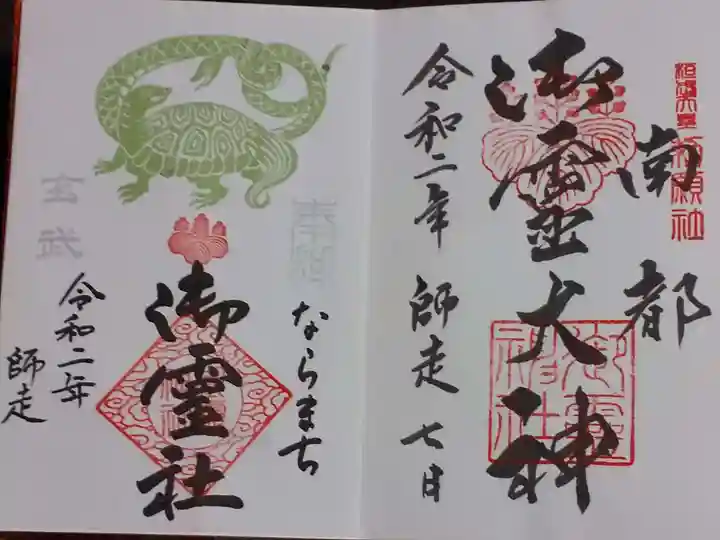 南都
御霊大神
令和二年 師走 七日
御霊神社
奉拝
ならまち
御靈社
玄武
令和二年
師走